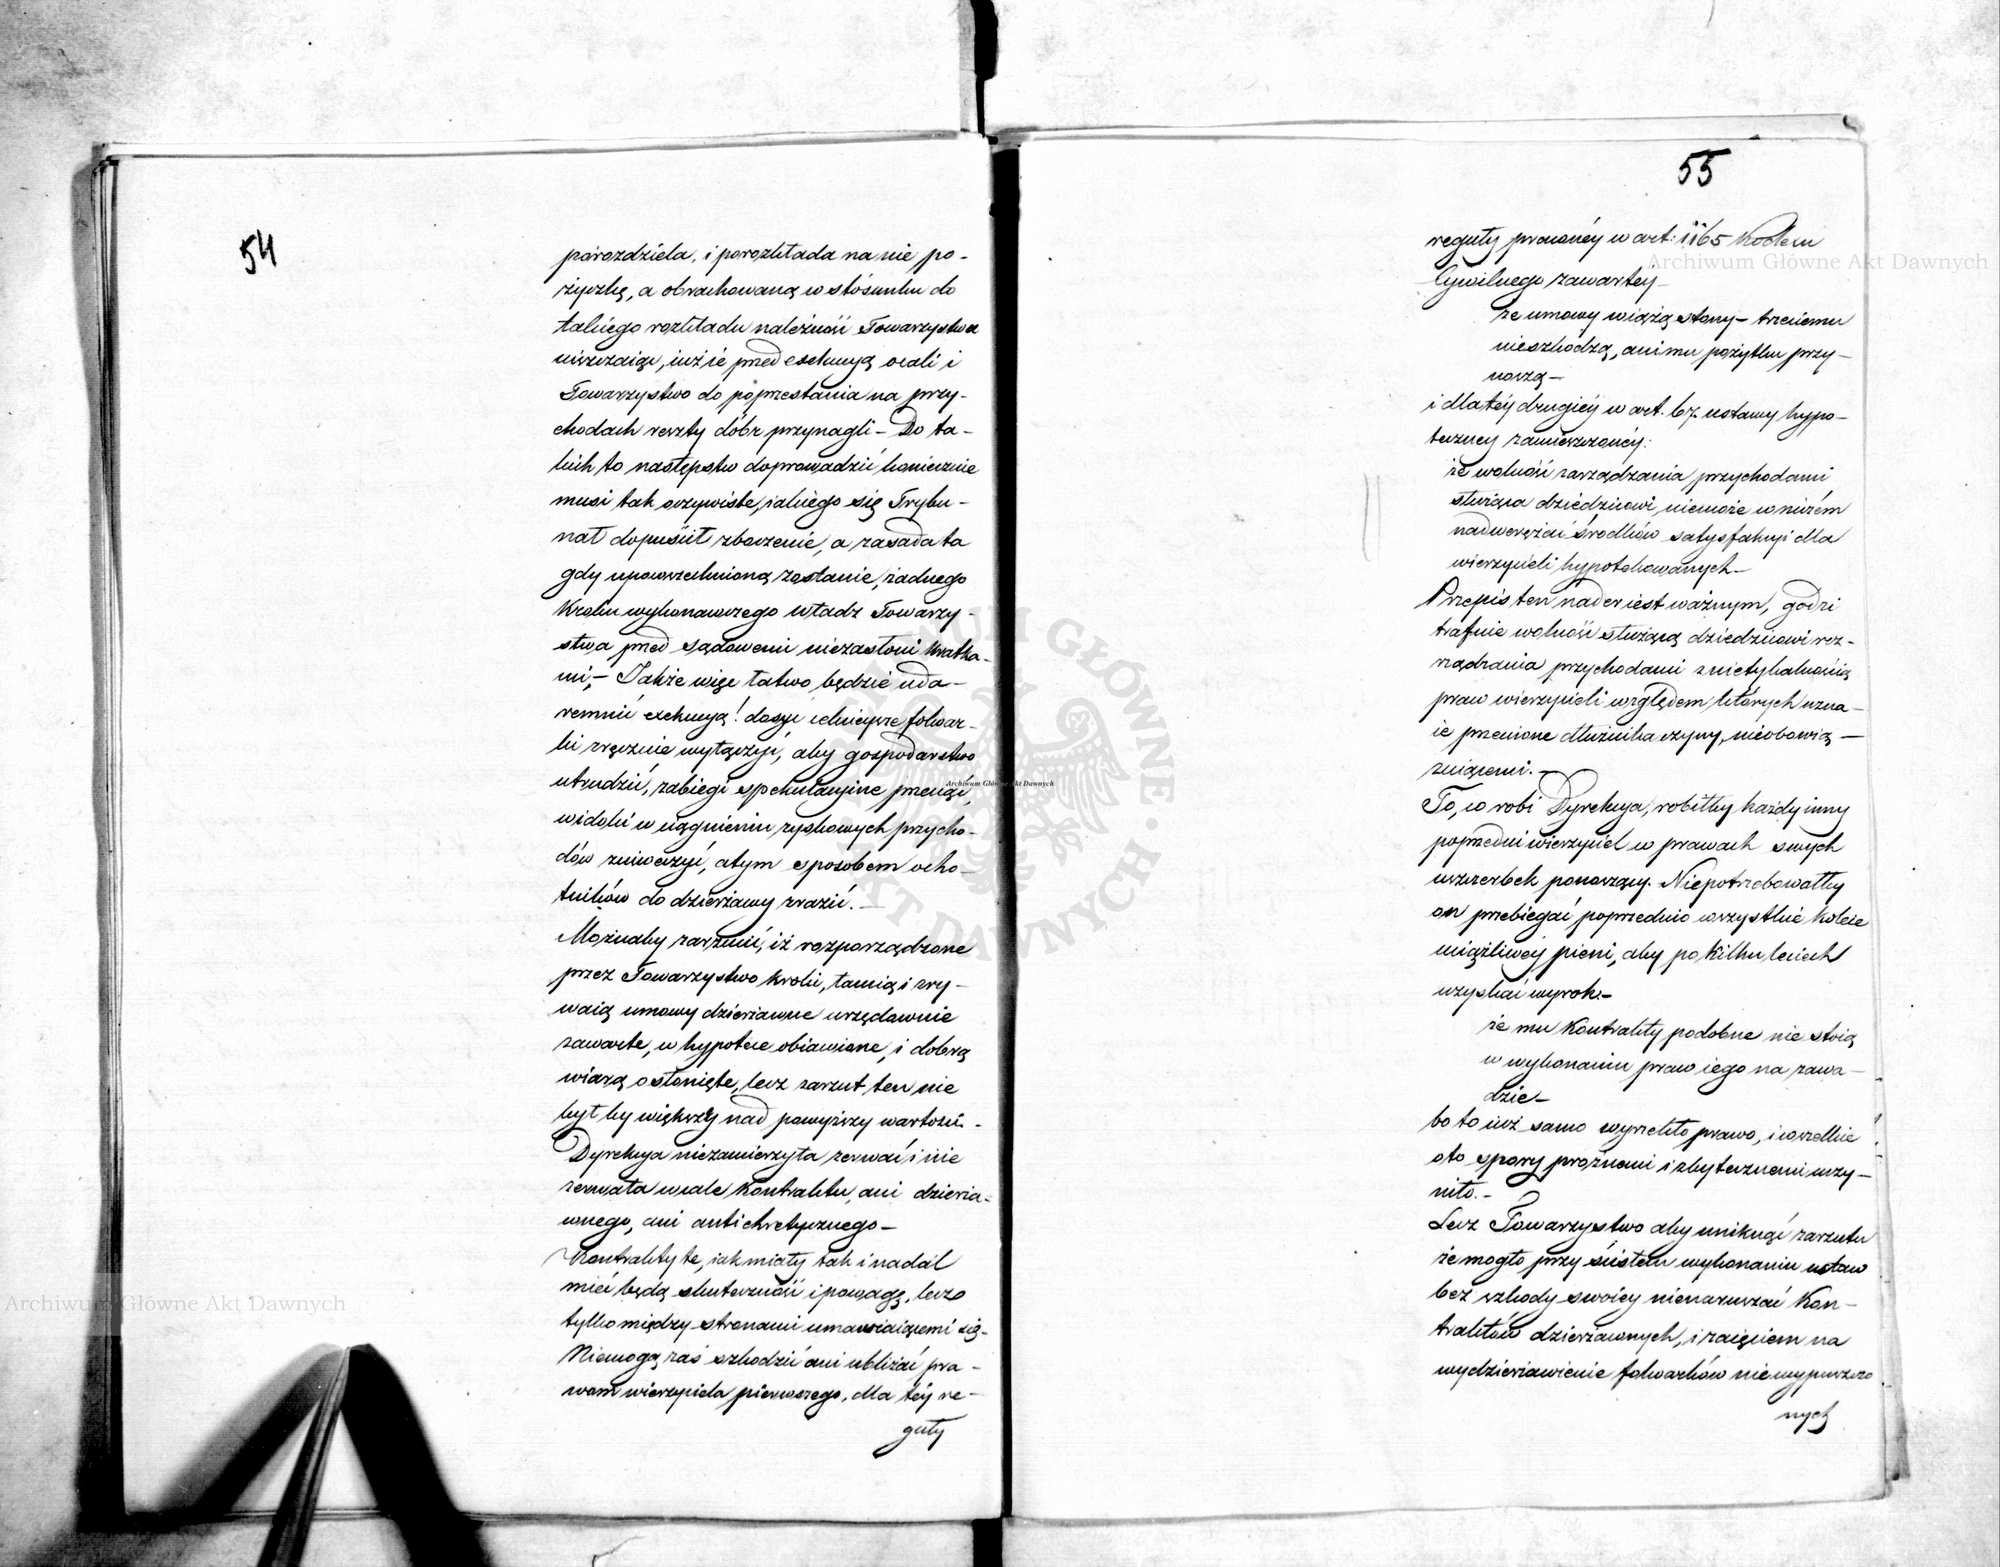 54
porozdziela, i porozkłada na nie po-
życzkę, a obrachowaną w stósunku do
takiego rozkładu należność Towarzystwa
uiszczaiąc, iuż ie przed exekucyą ocali i
Towarzystwo do poprzestania na przy-
chodach reszty dóbr przynagli – Do ta-
kich to następstw doprowadzić koniecznie
musi tak oczywiste, iakiego się Trybu-
nał dopuścił zboczenie, a zasada ta
gdy upowszechnioną zostanie, żadnego
kroku wykonawczego władz Towarzy-
stwa przed sądowemi niezasłoni kratka-
mi; – Jakże więc łatwo będzie uda-
remnić exekucyą! dosyć celnieysze folwar-
ki zręcznie wyłączyć, aby gospodarstwo
utrudzić, zabiegi spekulacyine przeciąć,
widoki w ciągnieniu zyskowych przycho-
dów zniweczyć, a tym sposobem ocho-
tników do dzierżawy zrazić. —
Możnaby zarzucić, iż rozporządzone
przez Towarzystwo kroki, łamią i zry-
waią umowy dzierżawne urzędownie
zawarte, w hypotece obiawione, i dobrą
wiarą osłonięte, lecz zarzut ten nie
byłby większy nad powyższy wartości. -
Dyrekcya niezamierzyła zerwać i nie
zerwała wcale kontraktu, ani dzierża-
wnego, ani antichretycznego –
Kontrakty te, iak miały tak i nadál
mieć będą skuteczność i powagę, lecz
tylko między stronami umawiaiącemi się-
Niemogą zaś szkodzić ani ubliżać pra-
wom wierzyciela pierwszego, dla téy re-
guły
55
reguły prawnéy w art: 1165 Kodexu
Cywilnego zawartey –
że umowy wiążą strony – trzeciemu
nieszkodzą, ani mu pożytku przy-
noszą –
i dla téy drugiéy w art. 67. ustawy hypo-
teczney zamieszczonéy:
że wolność zarządzania przychodami
służąca dziedzicowi, niemoże w niczém
nadwerężać środków satysfakcyi dla
wierzycieli hypotekowanych –
Przepis ten nader iest ważnym, godzi
trafnie wolność służącą dziedzicowi roz-
rządzania przychodami z nietykalnością
praw wierzycieli względem których uzna-
ie przeciwne dłużnika czyny, nieobowią-
zuiącemi. –
To, co robi Dyrekcya, robiłby każdy inny
poprzedni wierzyciel w prawach swych
uszczerbek ponoszący. Niepotrzebowałby
on przebiegać poprzednio wszystkie koleie
uciążliwéy pieni, aby po kilku leciech
uzyskać wyrok. –
że mu kontrakty podobne nie stoią
w wykonaniu praw iego na zawa-
dzie –
bo to iuż samo wyrzekło prawo, i wszelkie
oto spory próżnemi i zbytecznemi uczy-
niło. –
Lecz Towarzystwo aby uniknąć zarzutu
że mogło przy ścisłem wykonaniu ustaw
bez szkody swoiéy nienaruszać Kon-
traktów dzierżawnych, i zaięciem na
wydzierżawienie folwarków niewypuszczo
nych
Archiwum Główne Akt Dawnych
Archiwum Główne Akt Dawnych
Archiwum Główne Akt Dawnych